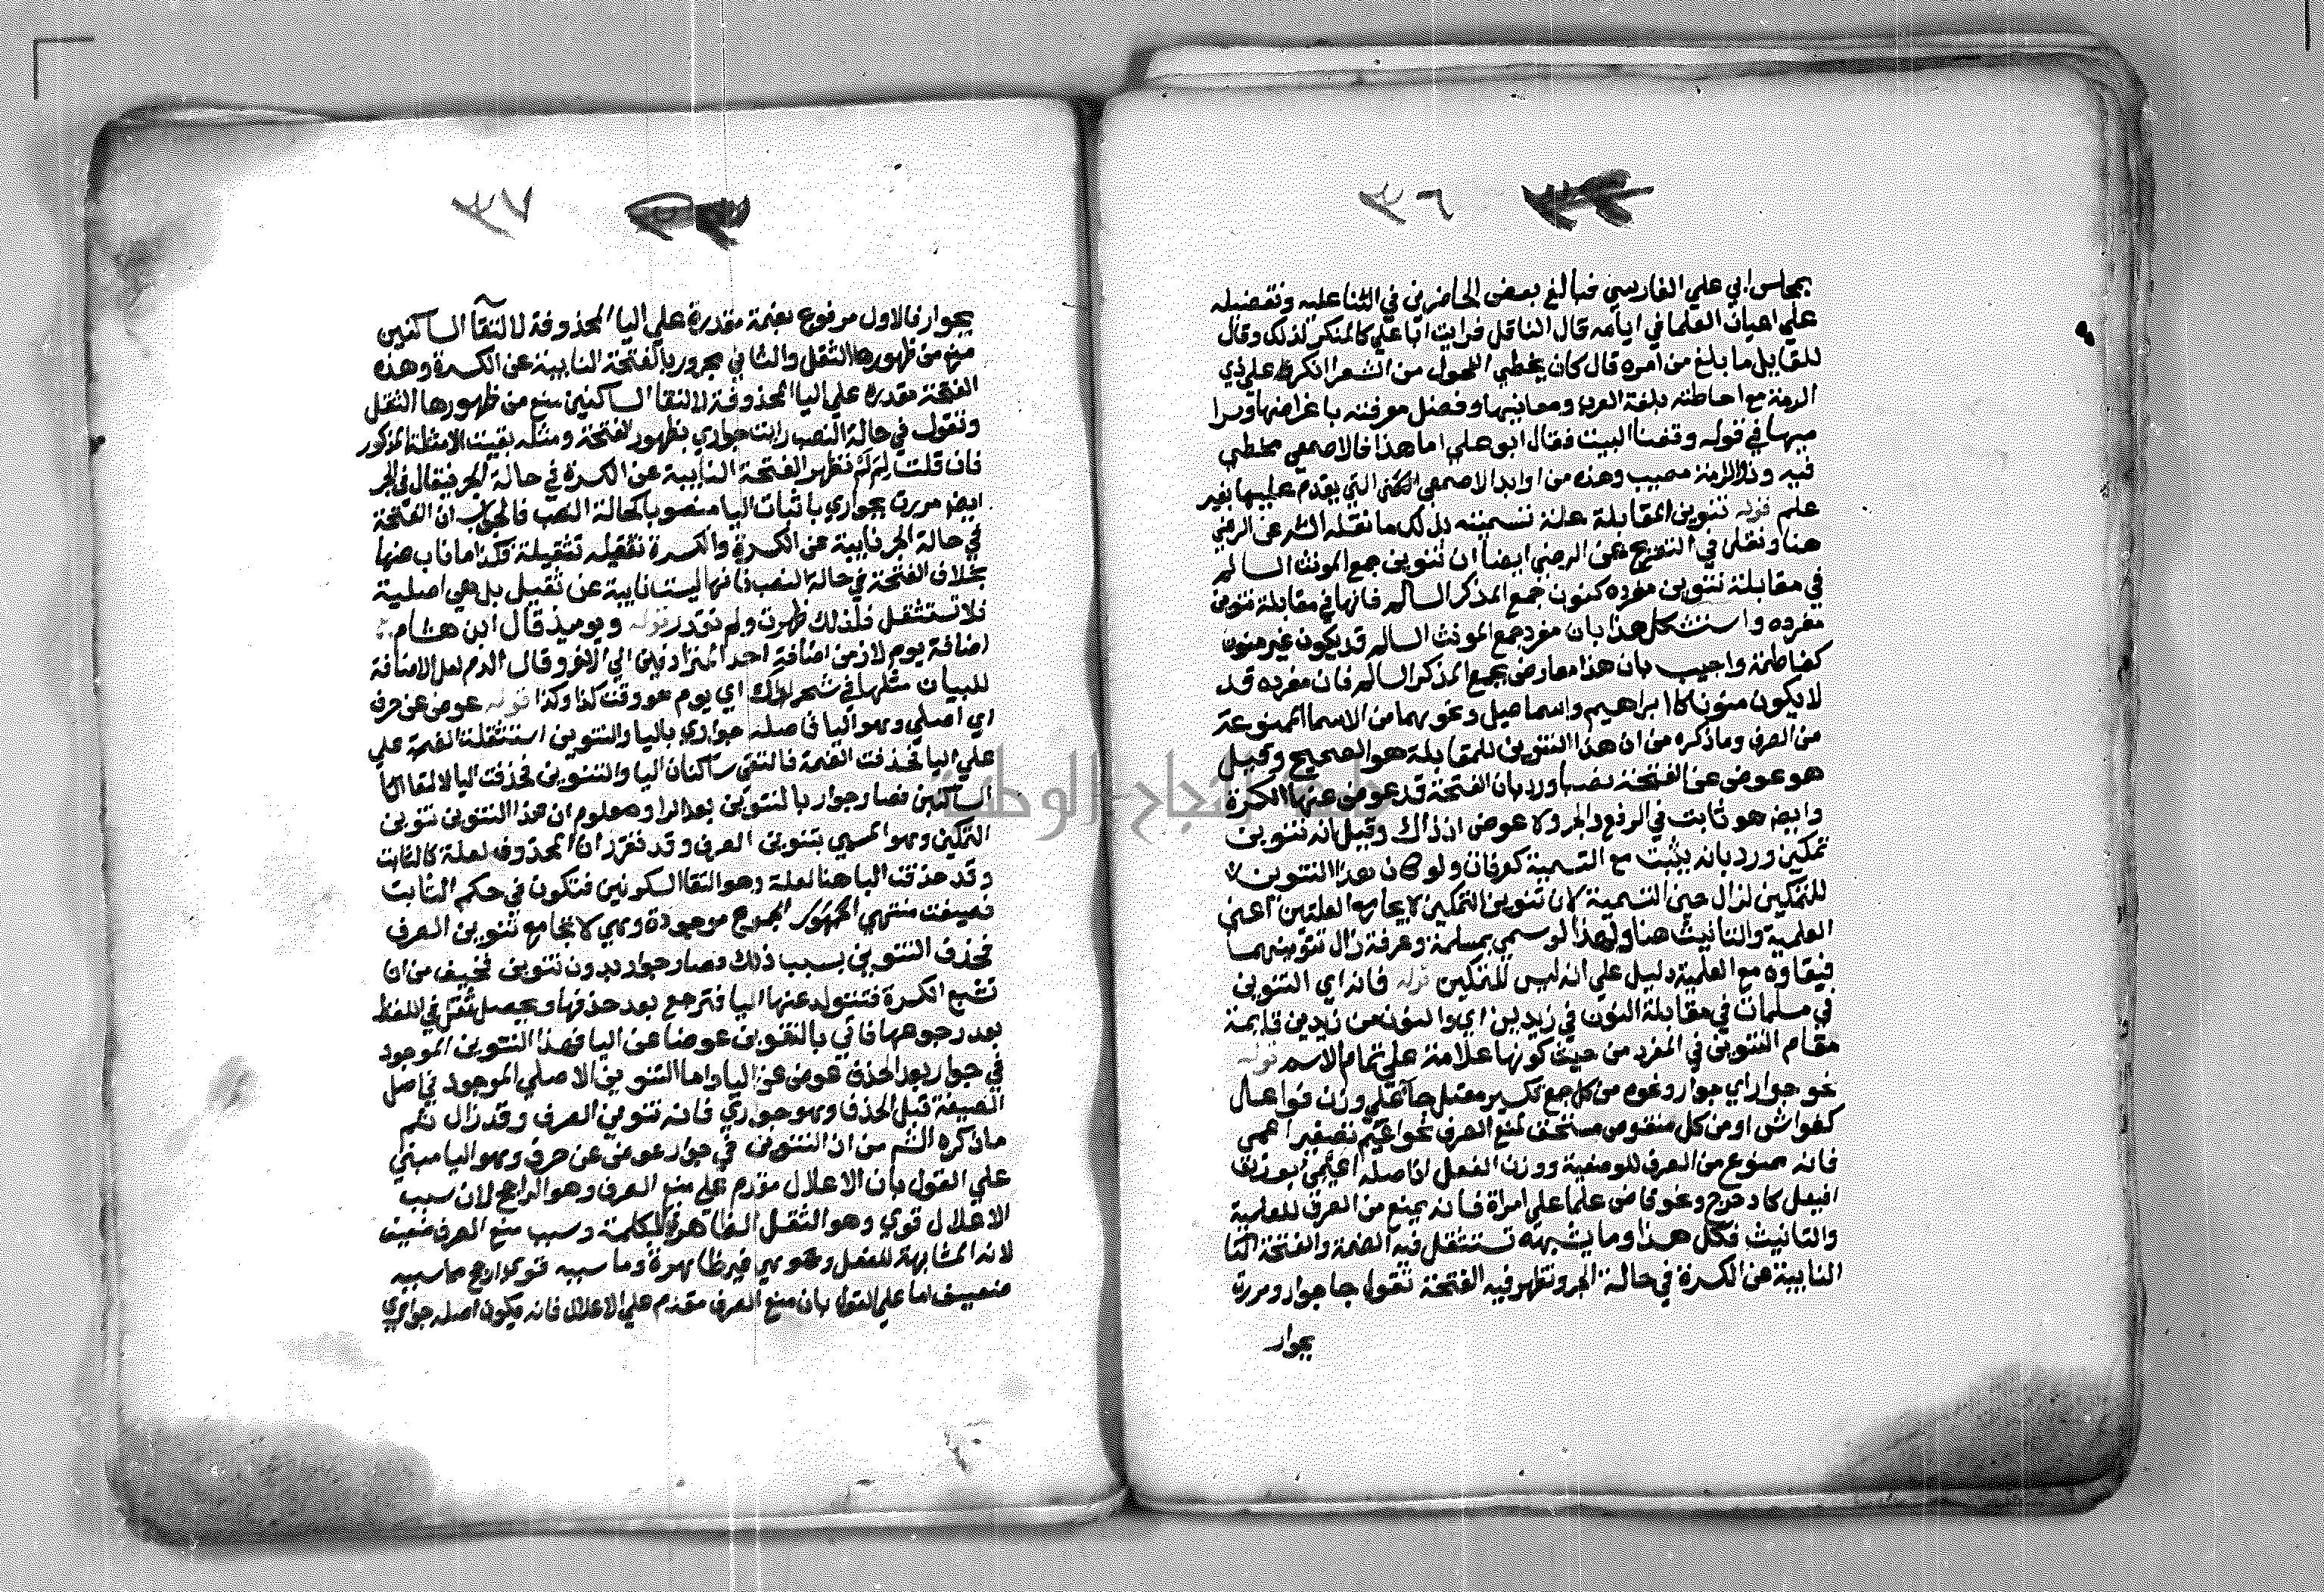 ٣٦
بمجلس ابي علي الفارسي فبالغ بعض الحاضرين في الثنا عليه وتفضيله
علي اعيان العلما في ايامه قال الناقل فرايت ابا علي كالمنكر لذلك وقال
للقايل ما بلغ من امره قال كان يخطي الفحول من الشعرا انكر علي ذي
الرمة مع احاطته بلغة العرب ومعانيها وفضل معرفته باغراضها
في قوله وقفنا البيت فقال ابو علي اما هذا فالاصمعي مخطي
فيه وذو الرمة مصيب وهذه من اوابد الاصمعي التي يقدم عليها بغير
علم قوله تنوين المقابلة علة تسميته بذلك ما نقله الش عن الرضي
هنا ونقل في التصريح عن الرضي ايضا ان تنوين جمع المونث السالم
في مقابلة تنوين مفرده كنون جمع المذكر السالم فانها في مقابلة تنوين
مفرده واستشكل هذا بان مفرد جمع المونث السالم قد يكون غير منون
كفاطمة واجيب بان هذا معارض بجمع المذكر السالم فان مفرده قد
لا يكون منونا كابراهيم واسماعيل ونحوهما من الاسما الممنوعة
من الصرف وما ذكره من ان هذا التنوين للمقابلة هو الصحيح وقيل
هو عوض عن الفتحة نصبا ورد بان الفتحة قد عوض عنها الكسرة
وايضا هو ثابت في الرفع والجر ولا عوض اذ ذاك وقيل انه تنوين
تمكين ورد بانه يثبت مع التسمية كعرفات ولو كان هذا التنوين
للتمكين لزال حين التسمية لان تنوين التمكين لا يجامع العلتين اعني
العلمية والتانيث هنا ولهذا لو سمي بمسلمة وعرفة زال تنوينهما
فبقاوه مع العلمية دليل علي انه ليس للتمكين قوله فانه اي التنوين
في مسلمات في مقابلة النون في زيدين اي والنون من زيدين قايمة
مقام التنوين في المفرد من حيث كونها علامة علي تمام الاسم قوله
نحو جوار اي جوار ونحوه من كل جمع تكسير معتل جا علي وزن فواعل
كغواش او من كل منقوص مستحق لمنع الصرف نحو اعيم تصغير اعمي
فانه ممنوع من الصرف للوصفية ووزن الفعل اذ اصله اعيمي بوزن
افيعل كادحرج ونحو قاض علما علي امراة فانه يمنع من الصرف للعلمية
والتانيث فكل هذا وما يشبهه تستثقل فيه الضمة والفتحة
النايبة عن الكسرة في حالة الجر وتظهر فيه الفتحة تقول جا جوار ومررت
بجوار
٣٧
بجوار فالاول مرفوع بضمة مقدرة علي اليا المحذوفة لالتقا الساكنين
منع من ظهورها الثقل والثاني مجرور بالفتحة النايبة عن الكسرة وهذه
الفتحة مقدرة علي اليا المحذوفة لالتقا الساكنين منع من ظهورها الثقل
وتقول في حالة النصب رايت جواري بظهور الفتحة ومثله بقيت الامثلة المذكور
فان قلت لم لم تظهر الفتحة النايبة عن الكسرة في حالة الجر فيقال في الجر
ايضا مررت بجواري باثبات اليا منصوبا كحالة النصب فالجواب ان الفتحة
في حالة الجر نايبة عن الكسرة والكسرة ثقيلة فكذا ما ناب عنها
بخلاف الفتحة في حالة النصب فانها ليست نايبة عن ثقيل بل هي اصلية
فلا تستثقل فلذلك ظهرت ولم تقدر قوله ويوميذ قال ابن هشام
اضافة يوم لاذ من اضافة احد المترادفين الي الاخر وقال الدم لعل الاضافة
للبيان مثلها في شجر اراك اي يوم هو وقت كذا وكذا قوله عوض عن حرف
اي اصلي وهو اليا فاصله جواري باليا والتنوين استثقلت الضمة علي
علي اليا فحذفت الضمة فالتقي ساكنان اليا والتنوين فحذفت اليا لالتقا
الساكنين فصار جوار بالتنوين بعد الرا ومعلوم ان هذا التنوين تنوين
التمكين وهو المسمي بتنوين الصرف وقد تقرر ان المحذوف لعلة كالثابت
وقد حذفت اليا هنا لعلة وهو التقا السكونين فتكون في حكم الثابت
فصيغت منتهي الجموع موجودة وهي لا تجامع تنوين الصرف
فحذف التنوين بسبب ذلك فصار جوار بدون تنوين فخيف من ان
تشبع الكسرة فتتولد عنها اليا فترجع بعد حذفها ويحصل ثقل في اللفظ
بعد رجوعها فاتي بالتنوين عوضا عن اليا فهذا التنوين الموجود
في جوار بعد الحذف عوض عن اليا واما التنوين الاصلي الموجود في اصل
الصيغة قبل الحذف وهو جواري فانه تنوين الصرف وقد زال ثم
ما ذكره الش من ان التنوين في جوار عوض عن حرف وهو اليا مبني
علي القول بان الاعلال مقدم علي منع الصرف وهو الراجح لان سبب
الاعلال قوي وهو الثقل الظاهر في الكلمة وسبب منع الصرف ضعيف
لانه المشابهة للفعل وهي غير ظاهرة وما سببه قوي ارجح مما سببه
ضعيف اما علي القول بان منع الصرف مقدم علي الاعلال فانه يكون اصله جواري